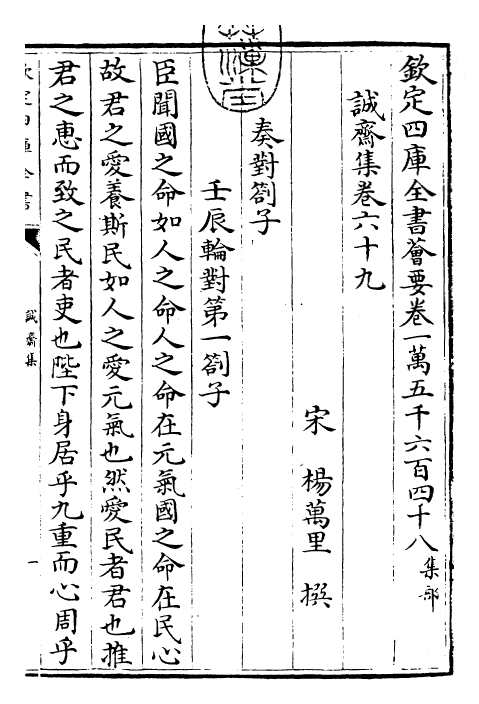 欽定四庫全書薈要卷一萬五千六百四十八集部
誠齋集卷六十九
宋 楊萬里 撰
奏對劄子
壬辰輪對第一劄子
臣聞國之命如人之命人之命在元氣國之命在民心
故君之愛養斯民如人之愛元氣也然愛民者君也推
君之恵而致之民者吏也陛下身居乎九重而心周乎
誠齋集
一